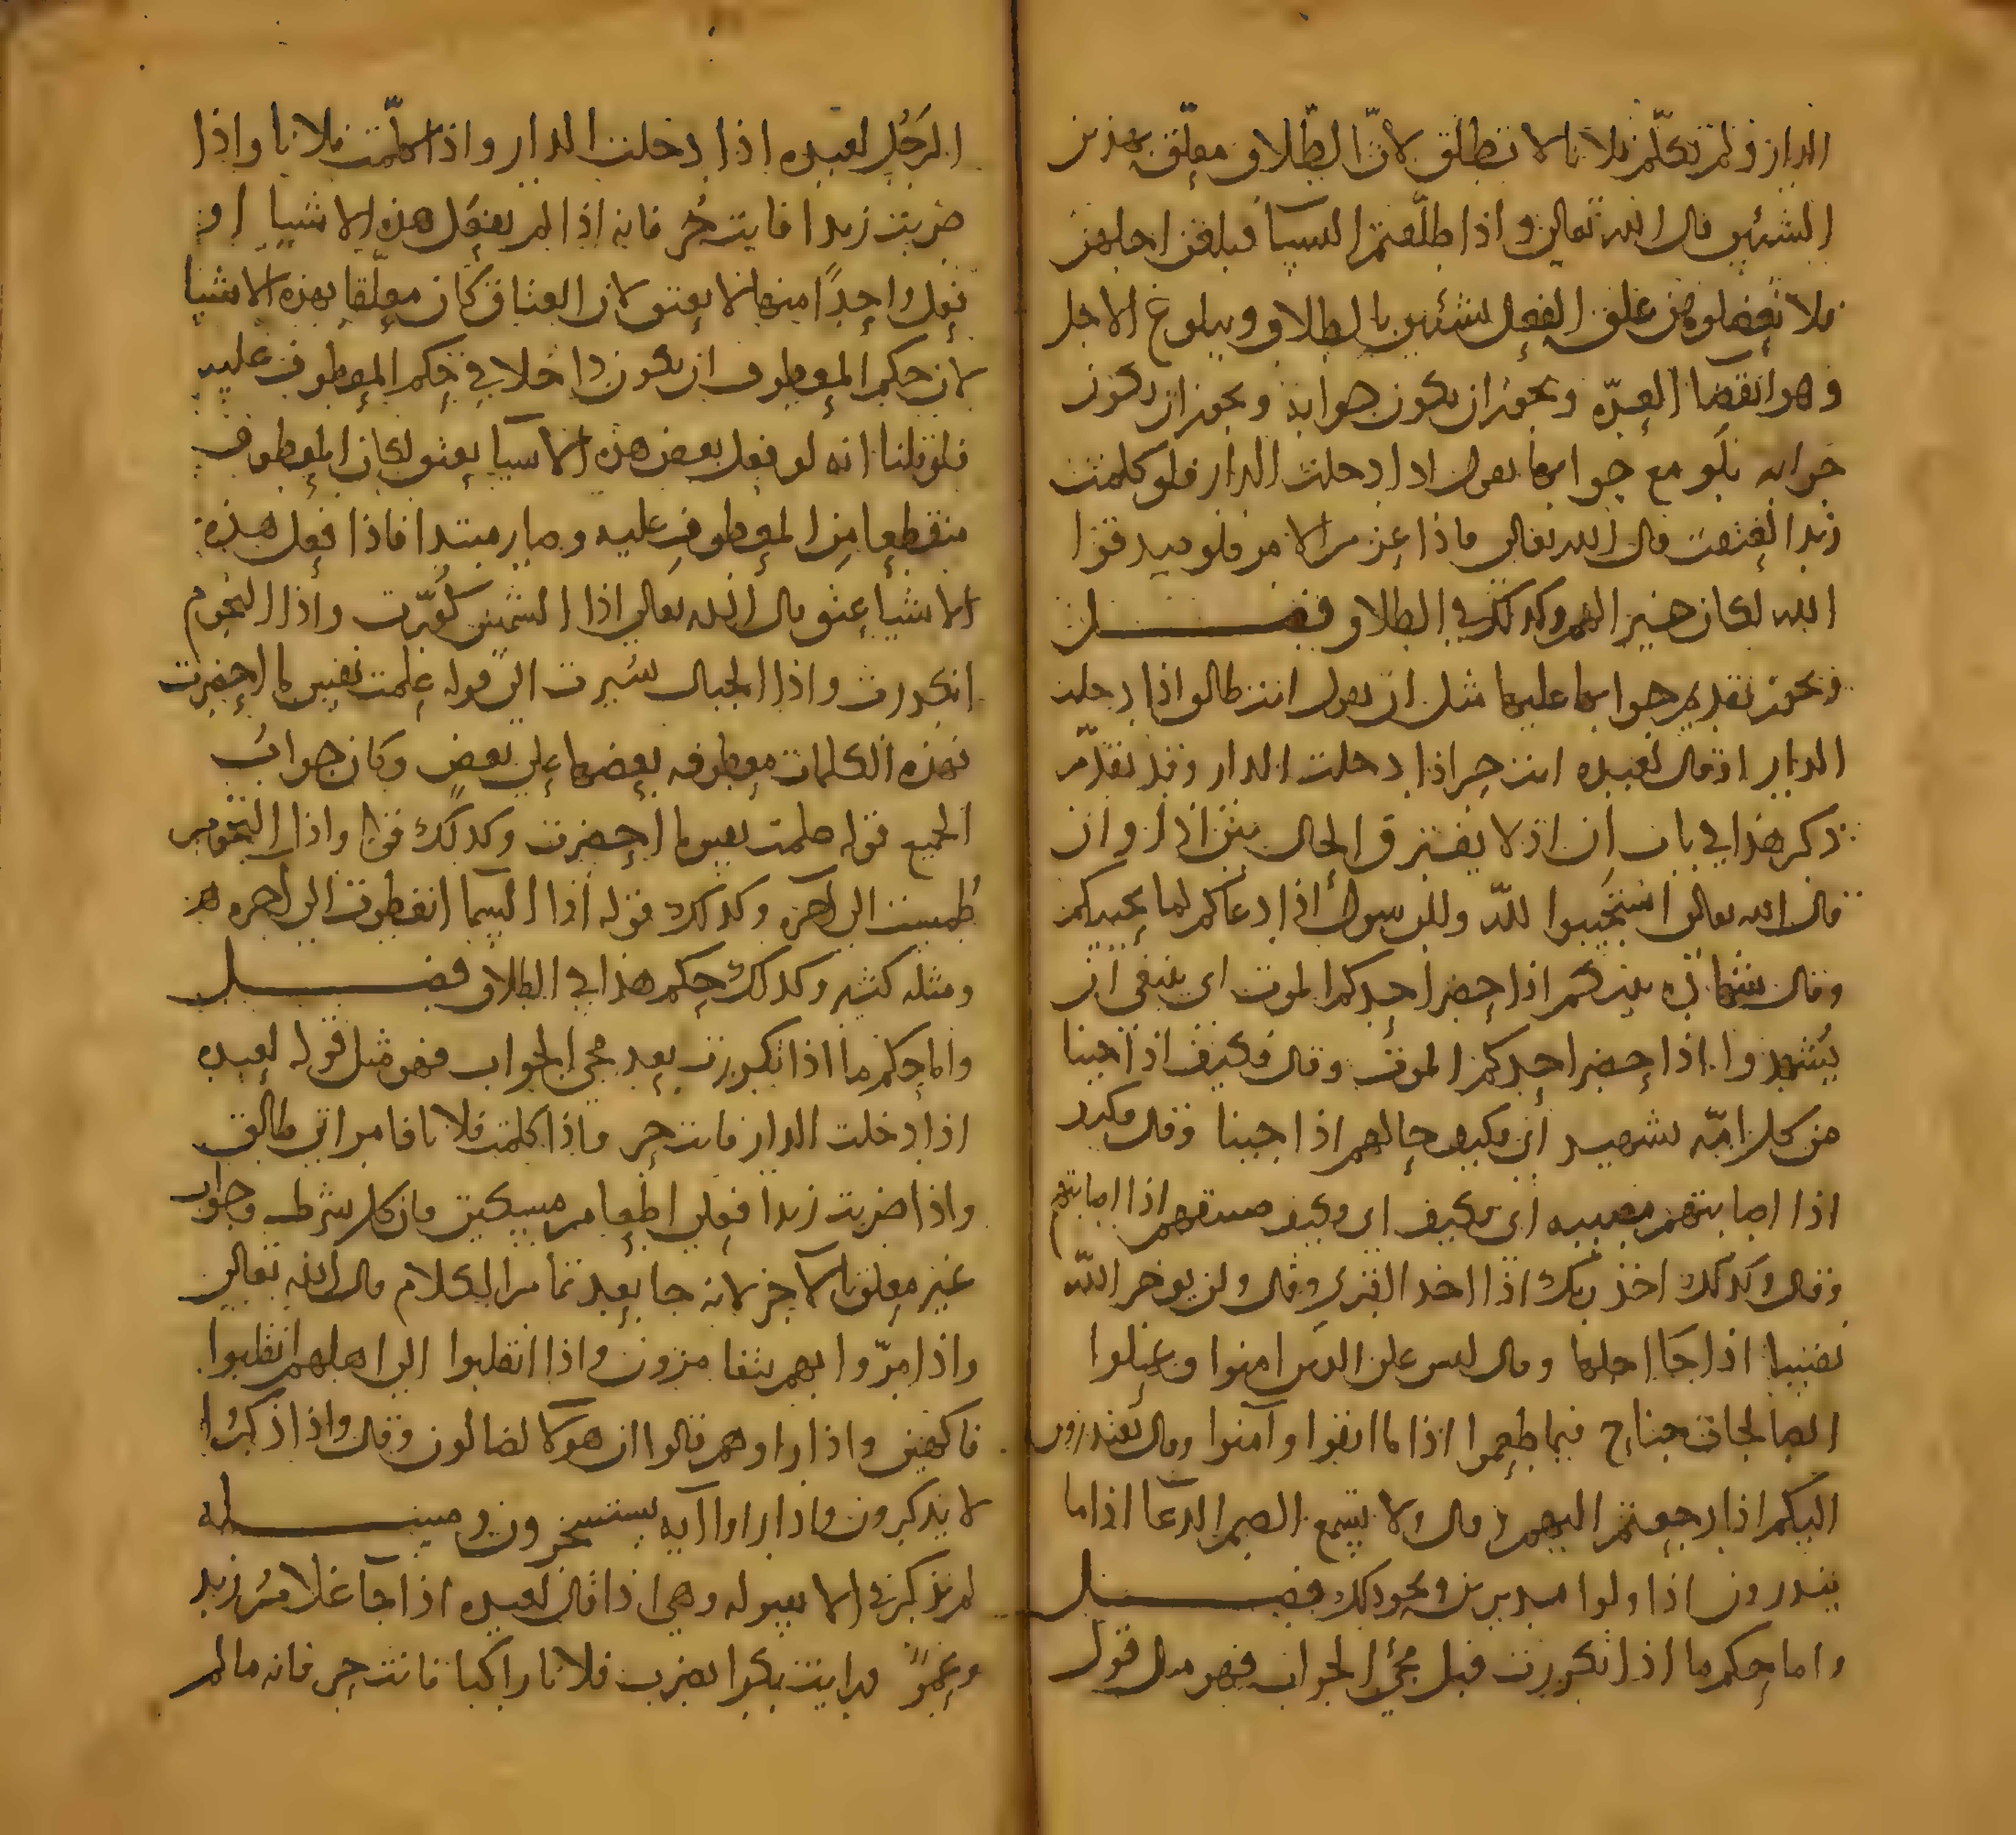 الدار ولم تكلّم فلانا لا تطلق لانّ الطّلاق معلّق بهذين
الشئين قال الله تعالى واذا طلّقتم النسآ فبلغن اجلهن
فلا تعضلوهن علق الفعل بشئين بالطلاق وببلوغ الاجل
وهو انقضا العدّه ويجوز ان يكون جوابه ويجوز ان يكون
جوابه بلو مع جوابها تقول اذا دخلت الدار فلو كلمت
زيدا لعتقت قال الله تعالى فاذا عزم الامر فلو صدقوا
الله لكان خيرا لهم وكذلك في الطلاق فصل
ويجوز تقديم جوابها عليها مثل ان يقول انت طالق اذا دخلت
الدار او قال لعبده انت حر اذا دخلت الدار وقد تقدّم
ذكر هذا في باب ان اذ لا يفترق الحال بين اذا وان
قال الله تعالى استجيبوا للّه وللرسول اذا دعاكم لما يحييكم
وقال شهادة بينكم اذا حضر احدكم الموت اى ينبغى ان
يُشهدوا اذا حضر احدكم الموت وقال فكيف اذا جينا
من كل امّه بشهيد اى فكيف حالهم اذا جينا وقال فكيف
اذا اصابتهم مصيبه اى فكيف اى وكيف صنعهم اذا اصابتهم
وقال وكذلك اخذ ربك اذا اخذ القرى وقال ولن يوخر اللّه
نفسا اذا جآ اجلها وقال ليس على الذين امنوا وعملوا
الصالحات جناح فيما طعموا اذا ما اتقوا وآمنوا وقال يعتذرون
اليكم اذا رجعتم اليهم وقال ولا يسمع الصم الدعآ اذا ما
ينذرون اذا ولوا مدبرين ونحو ذلك فصل
واما حكم ما اذا تكررت قبل مجئ الجواب فهو مثل قول
الرَجُل لعبده اذا دخلت الدار واذا كلّمت فلانا واذا
ضربت زيدا فانت حُر فانه اذا لم يفعل هذه الاشيا او
فعل واحدًا منها لا يعتق لان العتاق كان معلّقا بهذه الاشيا
لان حكم المعطوف ان يكون داخلا في حكم المعطوف عليه
فلو قلنا انه لو فعل بعض هذه الاشيا يعتق لكان المعطوف
منقطعا مِن المعطوفِ عليه وصار مبتدا فاذا فعل هذه
الاشيا عتق قال الله تعالى اذا الشمس كُوّرت واذا النجوم
انكدرت واذا الجبال سُيرت الى قوله عِلمت نفس ما احضرت
فهذه الكلمات معطوفه بعضها على بعضٍ وكان جوابُ
الجميع قوله علمت نفس ما احضرت وكذلك قوله واذا النجوم
طُمست الى آخره وكذلك قوله اذا السما انفطرت الى آخره
ومثله كثير وكذلك حكم هذا في الطلاق فصل
واما حكم ما اذا تكررت بعد مجئ الجواب فهو مثل قوله لعبده
اذا دخلت الدار فانت حر واذا كلمت فلانا فامراتى طالق
واذا ضربت زيدا فعلى اطعام مسكين فان كل شرط وجواب
غير معلق بالآخر لانه جا بعد تمام الكلام قال الله تعالى
واذا مرّوا بهم يتغامزون واذا انقلبوا الى اهلهم انقلبوا
فاكهين واذا راوهم قالوا ان هولآ لضالون وقال واذا ذكرُوا
لا يذكرون واذا راوا آيه يستسخرون مسئله
لم تذكر في الا بقوله وهي اذا قال لعبده اذا جآ غلامُ زيد
وعمرٍو فرايت بكرا يضرب فلانا راكبا فانت حر فانه ما لم